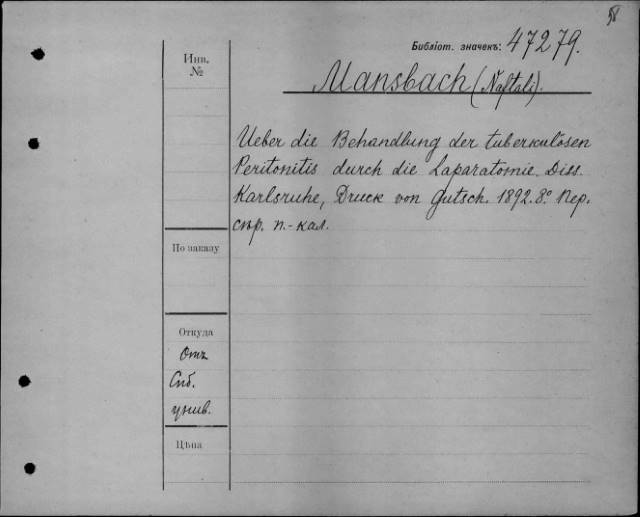 58
Библіот. значекъ: 47279.
Инв.
№
Mansbach (Naftali).
Ueber die Behandlung der tuberkulösen
Peritonitis durch die Laparatomie. Diss.
Karlsruhe, Druck von Gutsch. 1892. 8º Пер.
сѣр. п.-кал.
По заказу
Откуда
Отъ
Спб.
унив.
Цѣна